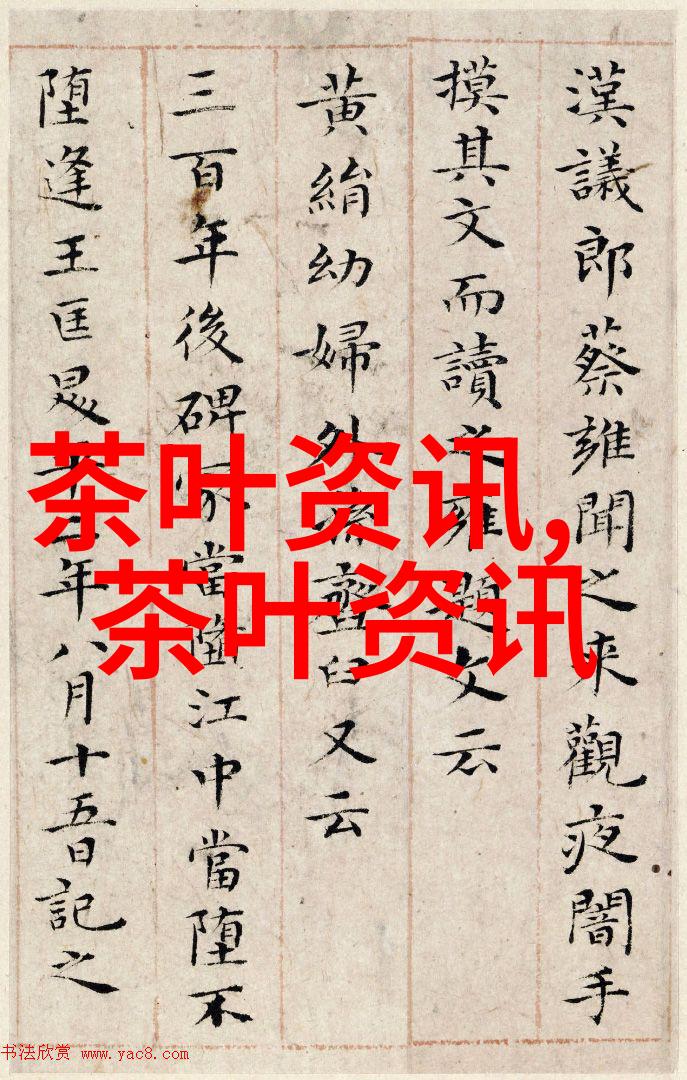 漢議郎蔡雍聞之来觀夜闇手
摸其文而讀之雍題文云
黄絹幼婦外孫齏臼又云
三百年後碑冢當堕江中當堕不
堕逢王匡昇平二年八月十五日記之
茶叶资讯,
茶叶资讯
书法欣赏 www.yac8.com